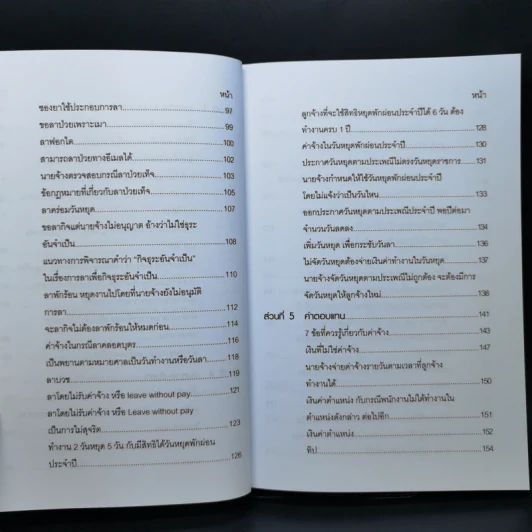 หน้า
ซองยาใช้ประกอบการลา 97
ขอลาป่วยเพราะเมา 99
ลาฟอกไต 100
สามารถลาป่วยทางอีเมลได้ 102
นายจ้างตรวจสอบกรณีลาป่วยเท็จ 103
ข้อกฎหมายที่เกี่ยวกับลาป่วยเท็จ 105
ลาคร่อมวันหยุด 107
ขอลากิจแต่นายจ้างไม่อนุญาต อ้างว่าไม่ใช่ธุระ
อันจำเป็น 108
แนวทางการพิจารณาคำว่า "กิจธุระอันจำเป็น"
ในเรื่องการลาเพื่อกิจธุระอันจำเป็น 110
ลาพักร้อน หยุดงานไปโดยที่นายจ้างยังไม่อนุมัติ
การลา 112
จะลากิจไม่ต้องลาพักร้อนให้หมดก่อน 114
ค่าจ้างในกรณีลาคลอดบุตร 116
เป็นพยานตามหมายศาลเป็นวันทำงานหรือวันลา 118
ลาบวช
ลาโดยไม่รับค่าจ้าง หรือ leave without pay 121
ลาโดยไม่รับค่าจ้าง หรือ Leave without pay
เป็นการไม่สุจริต 123
ทำงาน 2 วันหยุด 5 วัน ก็มีสิทธิได้วันหยุดพักผ่อน
ประจำปี 126
หน้า
ลูกจ้างที่จะใช้สิทธิหยุดพักผ่อนประจำปีได้ 6 วัน ต้อง
ทำงานครบ 1 ปี 128
ค่าจ้างในวันหยุดพักผ่อนประจำปี 130
ประกาศวันหยุดตามประเพณีไม่ตรงวันหยุดราชการ 131
นายจ้างกำหนดให้ใช้วันหยุดพักผ่อนประจำปี
โดยไม่แจ้งว่าเป็นวันไหน 133
ออกประกาศวันหยุดตามประเพณีประจำปี พอปีต่อมา
จำนวนวันลดลง 134
เพิ่มวันหยุด เพื่อกระชับวันลา 136
ไม่จัดวันหยุดต้องจ่ายเงินค่าทำงานในวันหยุด 137
นายจ้างจัดวันหยุดตามประเพณีไม่ถูกต้อง จะต้องมีการ
จัดวันหยุดให้ลูกจ้างใหม่ 138
ส่วนที่ 5 ค่าตอบแทน 141
7 ข้อที่ควรรู้เกี่ยวกับค่าจ้าง 143
เงินที่ไม่ใช่ค่าจ้าง 147
นายจ้างจ่ายค่าจ้างรายวันตามเวลาที่ลูกจ้าง
ทำงานได้ 150
เงินค่าตำแหน่ง กับกรณีพนักงานไม่ได้ทำงานใน
ตำแหน่งดังกล่าว ต่อไปอีก 151
เงินค่าตำแหน่ง 152
ทิป 154